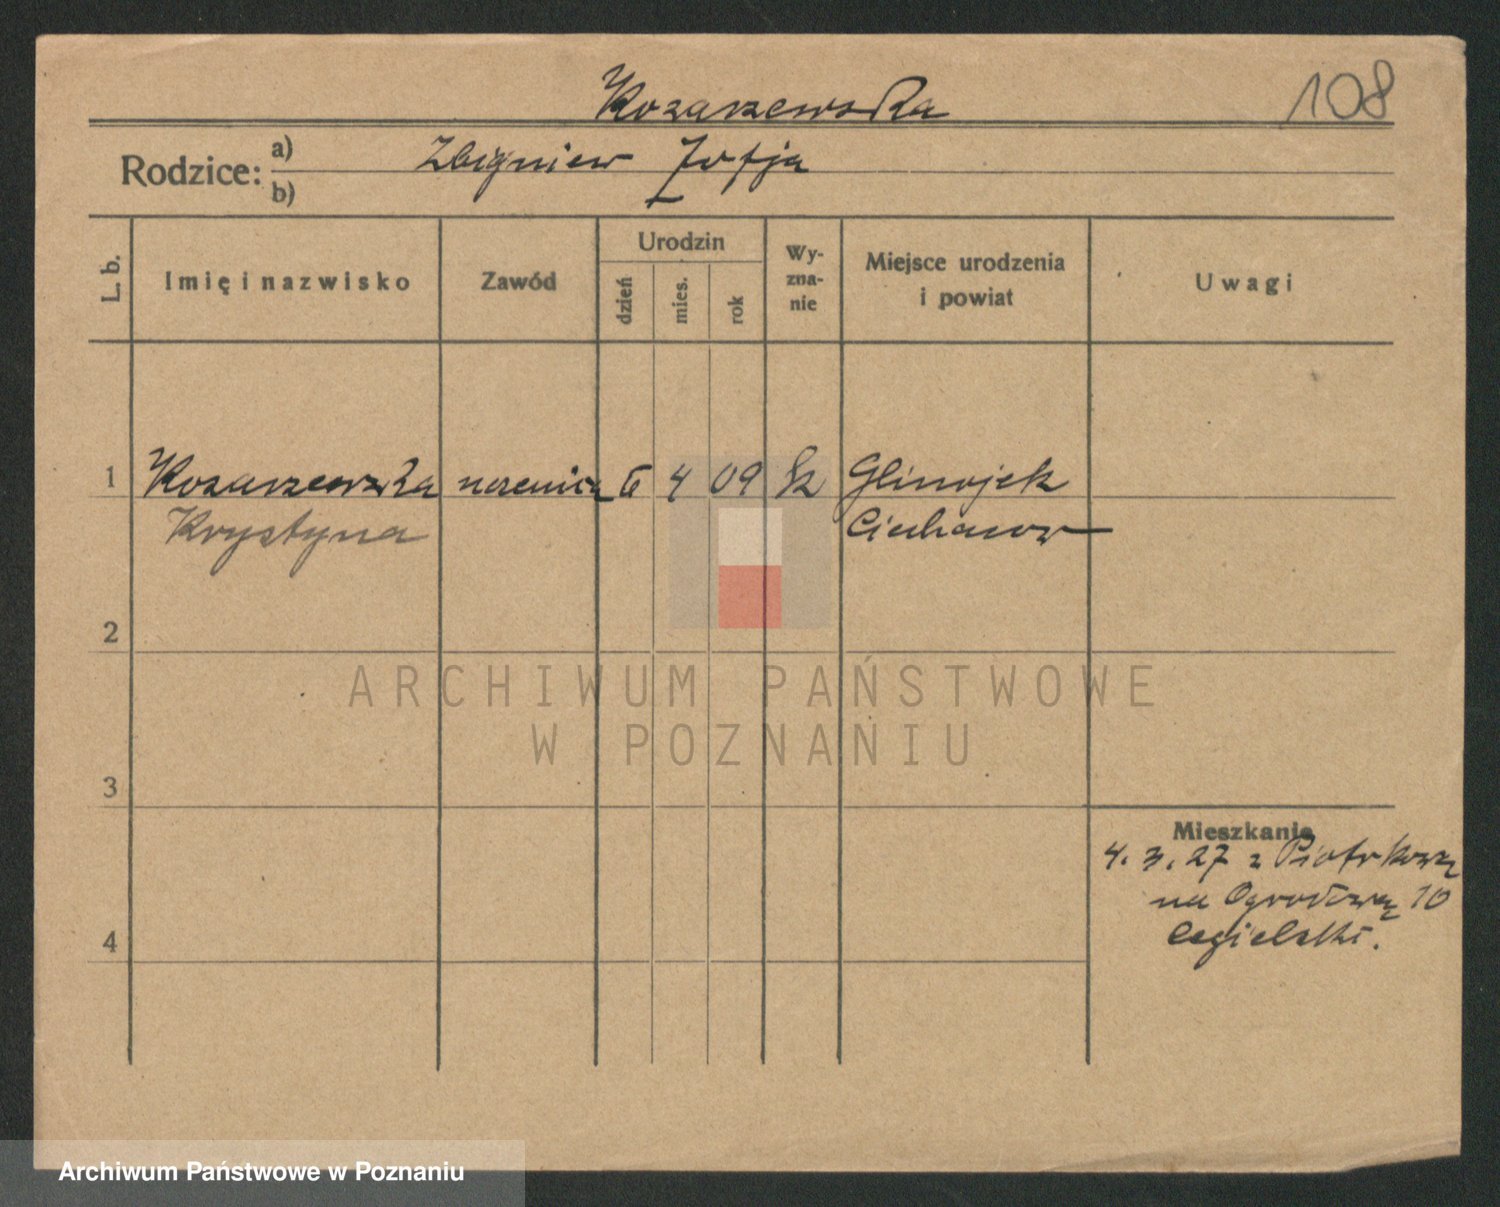 Kozarzewska 108
Rodzice: a) Zbigniew Zofja
b)
L. b. Imię i nazwisko Zawód Urodzin dzień mies. rok Wy-zna-nie Miejsce urodzenia i powiat Uwagi
1 Kozarzewska uczenica 6 4 09 rk Glinojek
Krystyna Ciechanow
2
ARCHIWUM PAŃSTWOWE
W POZNANIU
3
Mieszkanie
4. 3. 27 z Piotrkowa
na Ogrodową 10
4 Cegielski.
Archiwum Państwowe w Poznaniu